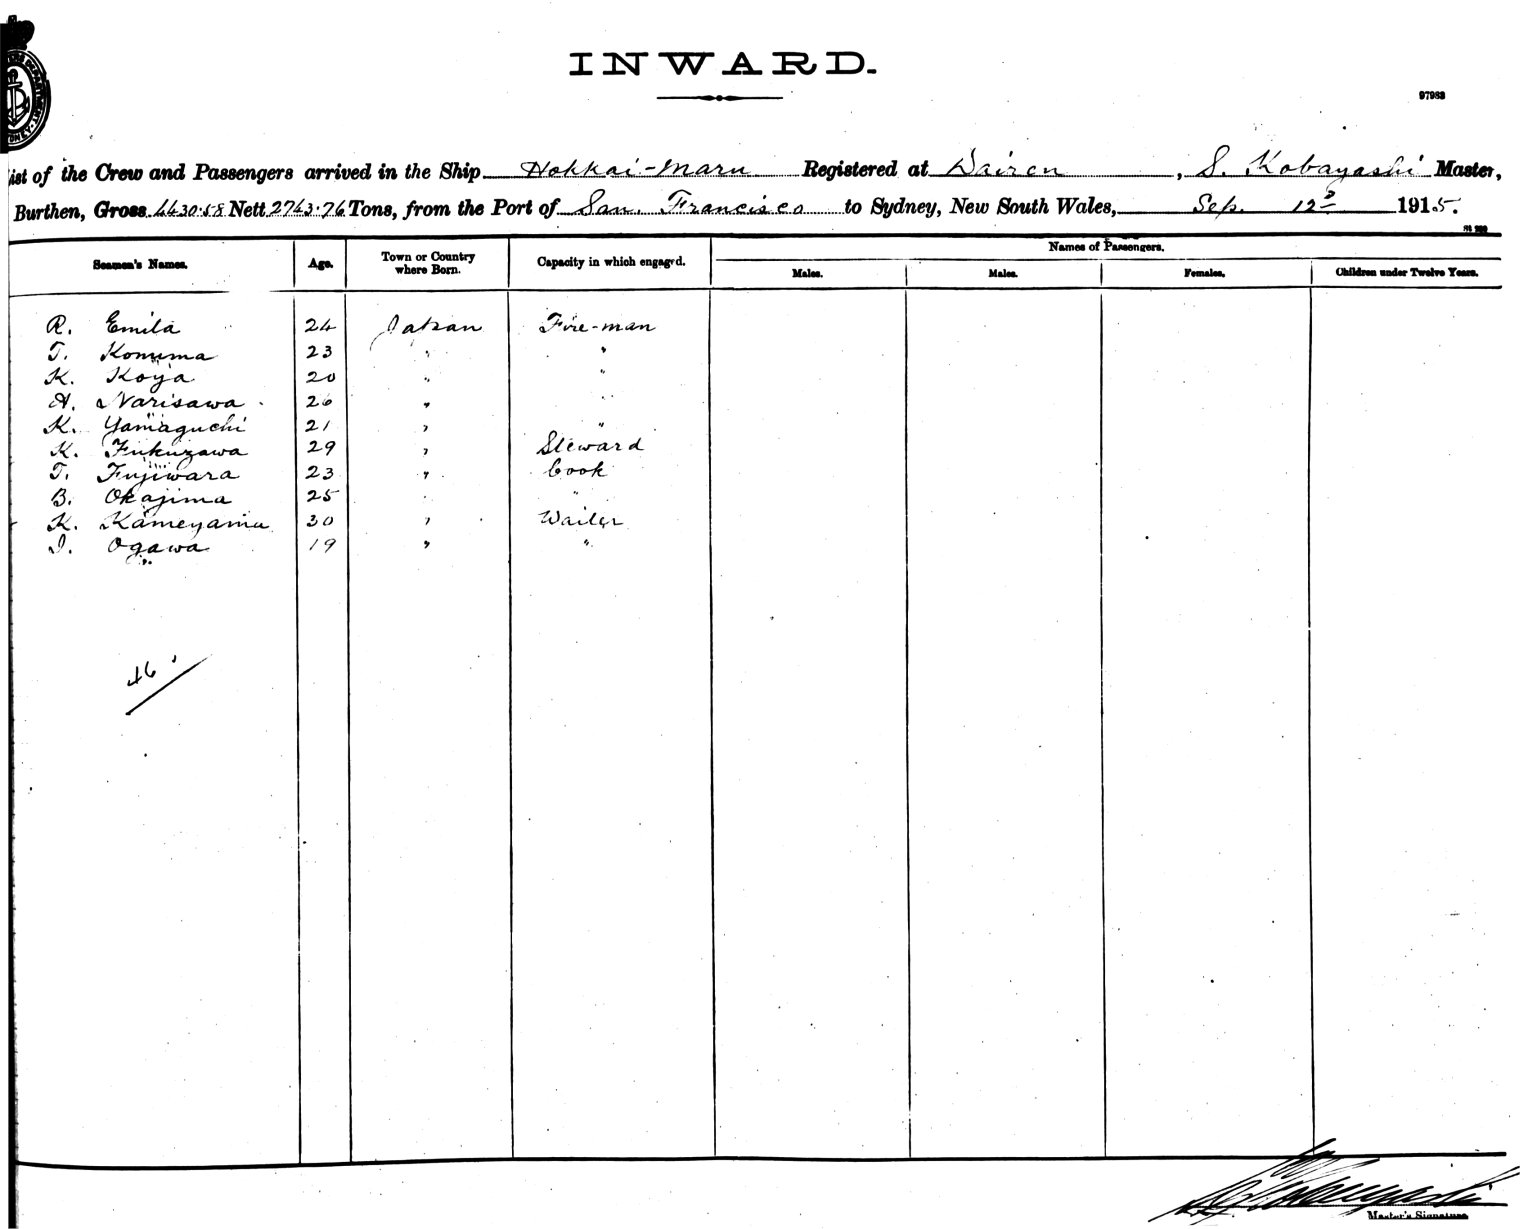 INWARD.
97983
ist of the Crew and Passengers arrived in the Ship Hokkai-Maru Registered at Dairen, S. Kobayashi Master,
Burthen, Gross 4430.58 Nett 2743.76 Tons, from the Port of San. Francisco to Sydney, New South Wales, Sep. 12 1915.
Seamen's Names. Age. Town or Country where Born. Capacity in which engaged. Names of Passengers.
Males. Males. Females. Children under Twelve Years.
R. Emila 24 Japan Fire-man
T. Konuma 23 " "
K. Koya 20 " "
A. Narisawa 26 " "
K. Yamaguchi 21 " "
K. Fukuzawa 29 " Steward
T. Fujiwara 23 " Cook
B. Okajima 25 " "
K. Kameyama 30 " Waiter
I. Ogawa 19 " "
46
Master's Signature